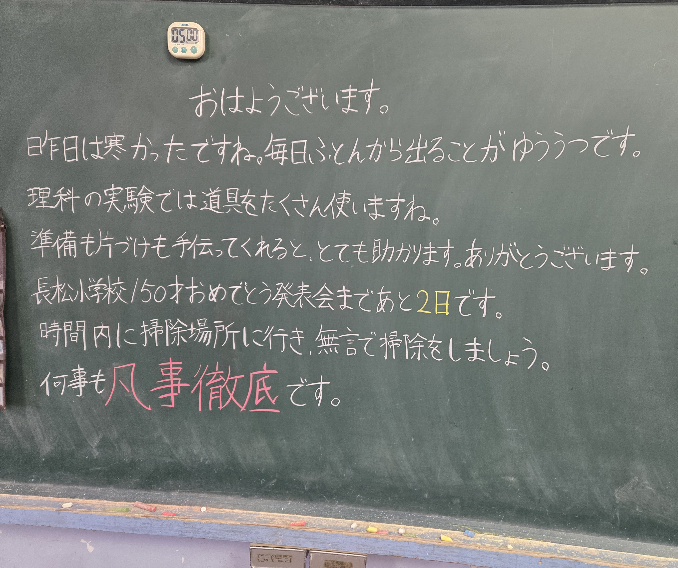 05:00
おはようございます。
昨日は寒かったですね。毎日ふとんから出ることがゆううつです。
理科の実験では道具をたくさん使いますね。
準備も片づけも手伝ってくれると、とても助かります。ありがとうございます。
長松小学校150才おめでとう発表会まであと2日です。
時間内に掃除場所に行き、無言で掃除をしましょう。
何事も凡事徹底です。